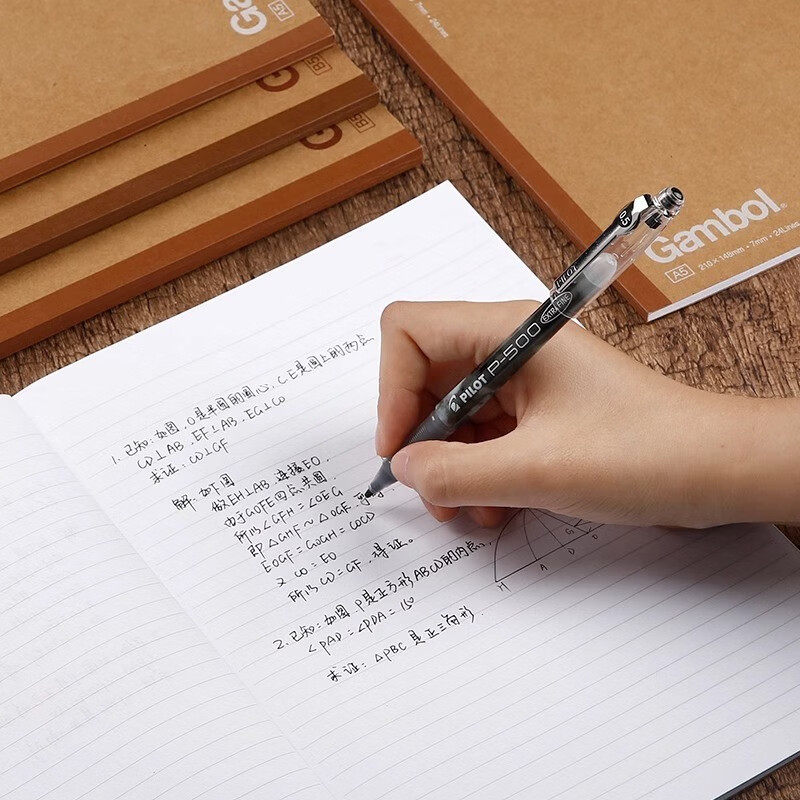 Gambol
A5
Gambol
B5
Gambol
B5
7mm·24Lines
Gambol®
A5 210×148mm·7mm·24Lines
0.5
PILOT
PILOT P-500 EXTRA FINE
1.已知:如图,O是半圆的圆心,C.E是圆上的两点
CD⊥AB.EF⊥AB.EG⊥CO
求证:CD⊥GF
解:如下图
做EH⊥AB,连接EO.
由于GOFE四点共圆
所以∠GFH=∠OEG
即△GMF~△OGE.
EOGF=GOGH=COCD
又CO=EO
所以CD=GF.得证。
2.已知:如图.P是正方形ABCD的内点.
∠PAD=∠PDA=15
求证:△PBC是正三角形.
G
H A D D